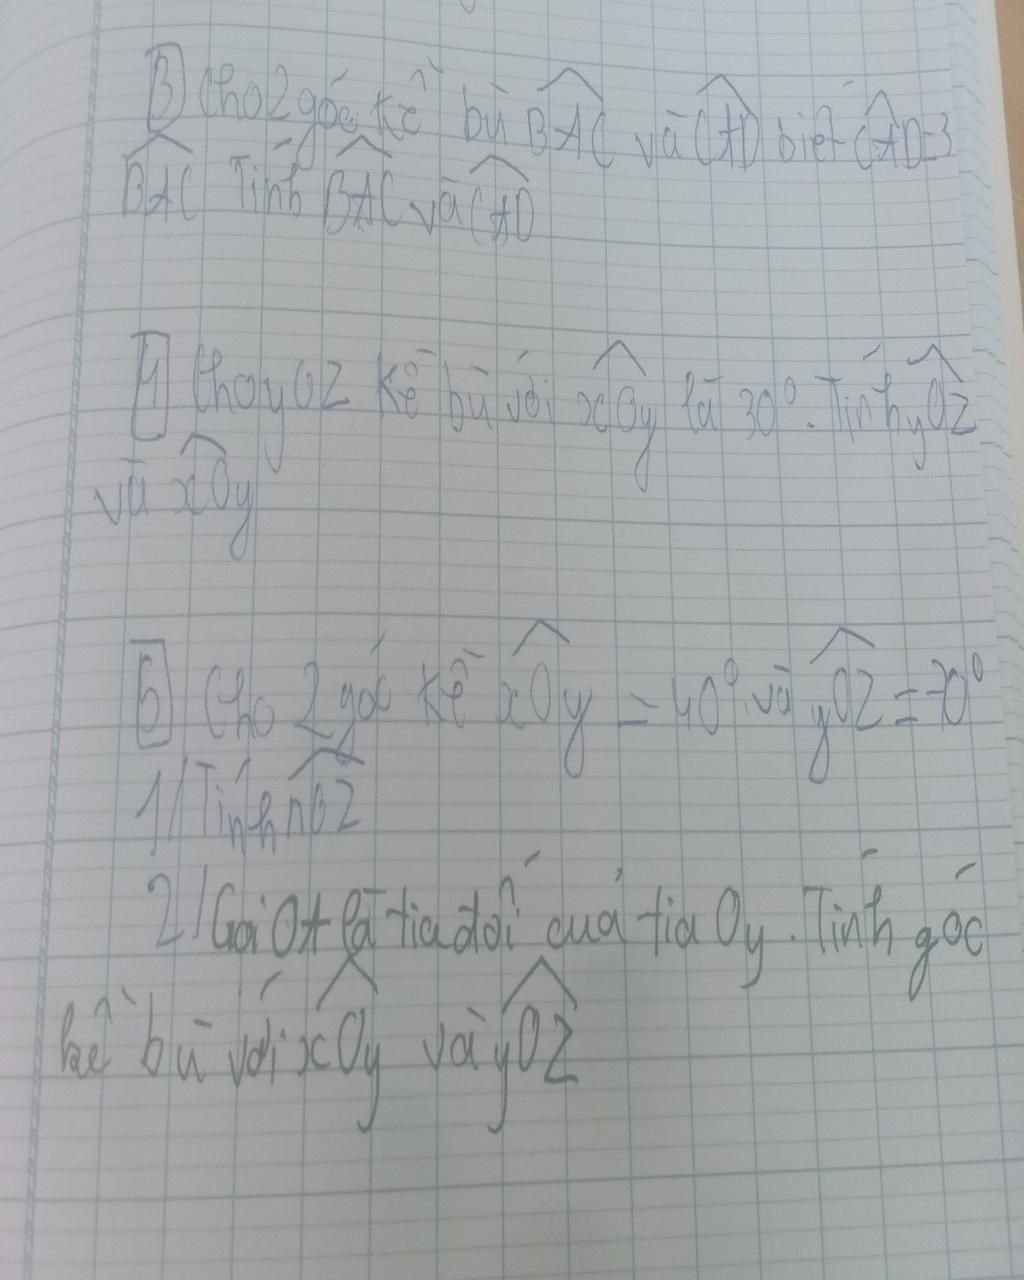 3 Cho 2 góc kề bù BAC và CAD biết CAD=3
BAC Tính BAC và CAD
4 Cho yOz kề bù với xOy là 30°. Tính yOz
và xOy
5 Cho 2 góc kề xOy = 40° và yOz = 70°
1/ Tính xOz
2/ Gọi Ot là tia đối của tia Oy. Tính góc
kề bù với xOy và yOz